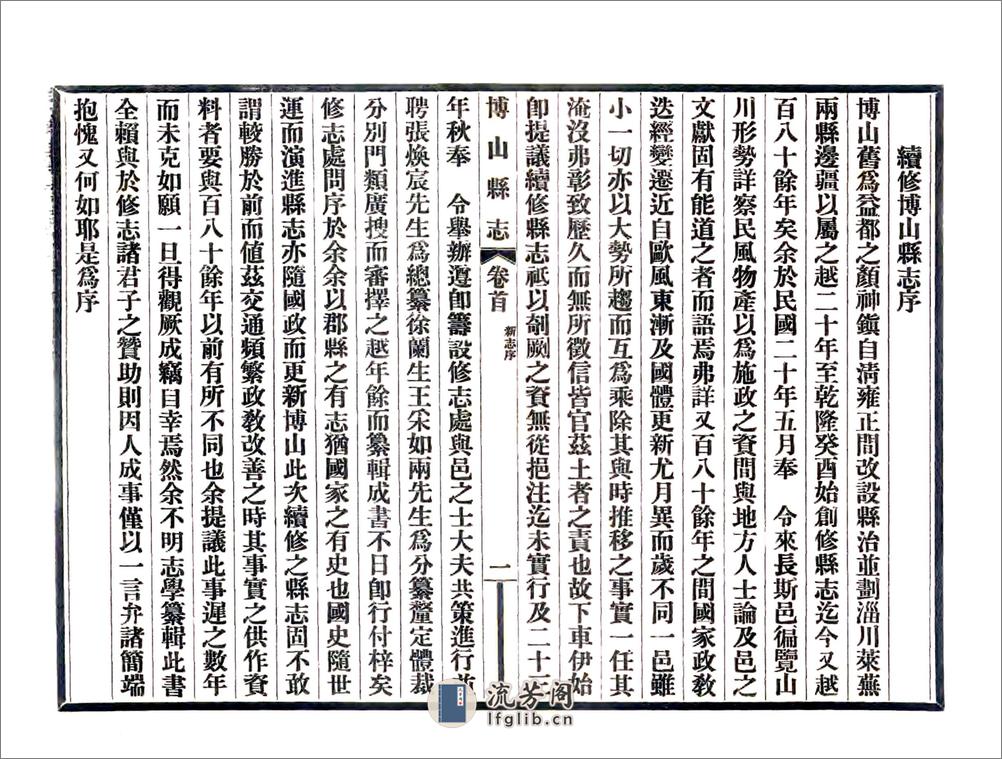 續修博山縣志序
博山舊爲益都之顏神鎭自淸雍正間改設縣治並劃淄川萊蕪
兩縣邊疆以屬之越二十年至乾隆癸酉始創修縣志迄今又越
百八十餘年矣余於民國二十年五月奉　令來長斯邑徧覽山
川形勢詳察民風物產以爲施政之資間與地方人士論及邑之
文獻固有能道之者而語焉弗詳又百八十餘年之間國家政敎
迭經變遷近自歐風東漸及國體更新尤月異而歲不同一邑雖
小一切亦以大勢所趨而互爲乘除其與時推移之事實一任其
淹沒弗彰致歷久而無所徵信皆官茲土者之責也故下車伊始
卽提議續修縣志祗以剞劂之資無從挹注迄未實行及二十三
博山縣志
卷首
新志序
一
年秋奉　令舉辦遵卽籌設修志處與邑之士大夫共策進行
聘張煥宸先生爲總纂徐蘭生王采如兩先生爲分纂釐定體裁
分別門類廣搜而審擇之越年餘而纂輯成書不日卽行付梓矣
修志處問序於余余以郡縣之有志猶國家之有史也國史隨世
運而演進縣志亦隨國政而更新博山此次續修之縣志固不敢
謂較勝於前而値茲交通頻繁政敎改善之時其事實之供作資
料者要與百八十餘年以前有所不同也余提議此事遲之數年
而未克如願一旦得觀厥成竊自幸焉然余不明志學纂輯此書
全賴與於修志諸君子之贊助則因人成事僅以一言弁諸簡端
抱愧又何如耶是爲序
流芳阁
lfglib.cn